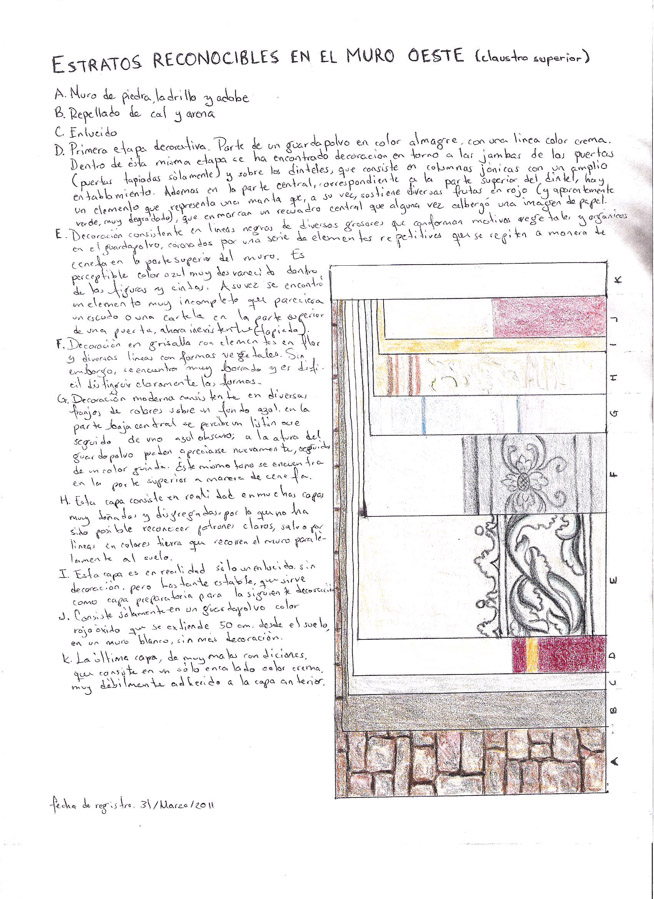 ESTRATOS RECONOCIBLES EN EL MURO OESTE (claustro superior)
A. Muro de piedra, ladrillo y adobe
B. Repellado de cal y arena
C. Enlucido
D. Primera etapa decorativa. Parte de un guardapolvo en color almagre, con una linea color crema.
Dentro de ésta misma etapa se ha encontrado decoración en torno a las jambas de las puertas
(puertas tapiadas sólamente) y sobre los dinteles, que consiste en columnas jónicas con un amplio
entablamiento. Ademas en la parte central, correspondiente a la parte superior del dintel, hay
un elemento que representa una manta que, a su vez, sostiene diversas frutas en rojo (y aparentemente
verde, muy degradado), que enmarcan un recuadro central que alguna vez albergó una imagen de papel.
E. Decoración consistente en lineas negras de diversos grosores que conforman motivos vegetales y orgánicos
en el guardapolvo, coronados por una serie de elementos repetitivos que se repiten a manera de
cenefa en la parte superior del muro. Es
perceptible color azul muy desvanecido dentro
de las figuras y cintas. A su vez se encontro
un elemento muy incompleto que pareciera
un escudo o una cartela en la parte superior
de una puerta, ahora inexistente (tapiada).
F. Decoración en grisalla con elementos en flor
y diversas lineas con formas vegetales. Sin
embargo, se encuentra muy borrado y es difi-
cil distinguir claramente las formas.
G. Decoración moderna consistente en diversas
franjas de colores sobre un fondo azul. en la
parte baja central se percibe un listón ocre
seguido de uno azul obscuro, a la altura del
guardapolvo pueden apreciarse nuevamente, seguido
de un color guinda. Éste mismo tono se encuentra
en la parte superior a manera de cenefa.
H. Esta capa consiste en realidad en muchas capas
muy dañadas y disgregadas, por lo que no ha
sido posible reconocer patrones claros, salvo por
lineas en colores tierra que recorren el muro parale-
lamente al suelo.
I. Esta capa es en realidad sólo un enlucido, sin
decoración, pero bastante estable, que sirve
como capa preparatoria para la siguiente decoración
J. Consiste sólamente en un guardapolvo color
rojo óxido que se extiende 50 cm. desde el suelo,
en un muro blanco, sin mas decoración.
K. La última capa, de muy malas condiciones,
que consiste en un sólo encalado color crema,
muy débilmente adherido a la capa anterior.
K
J
I
H
G
F
E
D
C
B
A
fecha de registro. 31/Marzo/2011